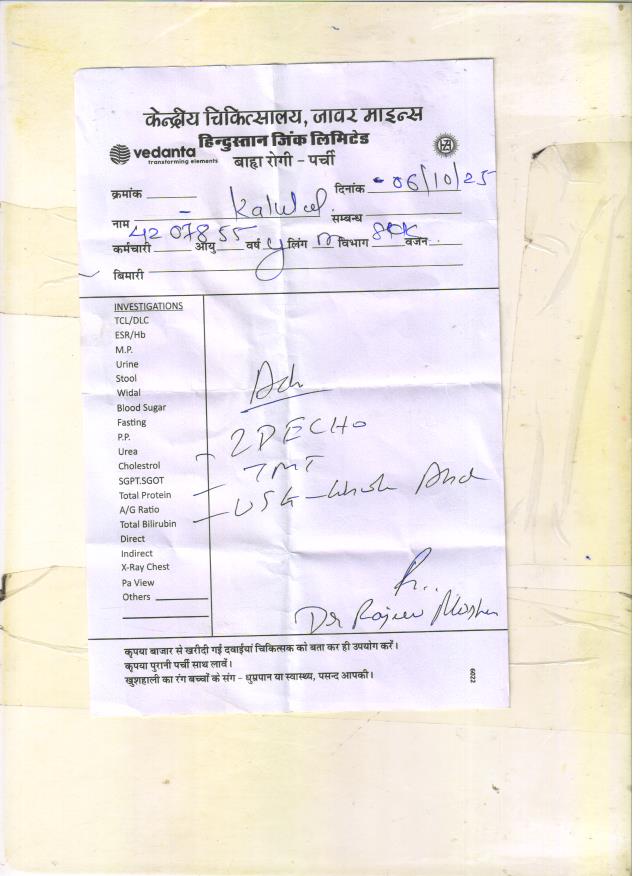 केन्द्रीय चिकित्सालय, जावर माइन्स
हिन्दुस्तान जिंक लिमिटेड
vedanta
transforming elements
बाह्य रोगी - पर्ची
क्रमांक दिनांक 06/10/25
नाम सम्बन्ध
4207855
कर्मचारी आयु वर्ष y लिंग m विभाग वजन
बिमारी
INVESTIGATIONS
TCL/DLC
ESR/Hb
M.P.
Urine
Stool
Widal
Blood Sugar
Fasting
P.P.
Urea
Cholestrol
SGPT.SGOT
Total Protein
A/G Ratio
Total Bilirubin
Direct
Indirect
X-Ray Chest
Pa View
Others
Adv
2D ECHO
TMT
USG - whole Abd
Dr Rajeev
कृपया बाजार से खरीदी गई दवाईयां चिकित्सक को बता कर ही उपयोग करें।
कृपया पुरानी पर्ची साथ लावें।
खुशहाली का रंग बच्चों के संग - धुम्रपान या स्वास्थ्य, पसन्द आपकी।
6022